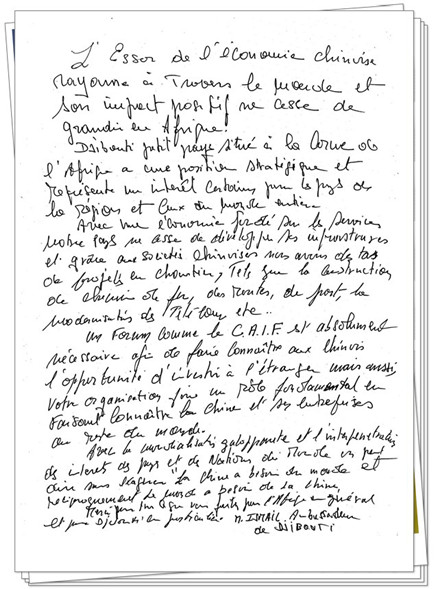 L'Essor de l'économie chinoise
rayonne à travers le monde et
son impact positif ne cesse de
grandir en Afrique.
Djibouti petit pays situé à la Corne de
l'Afrique a une position stratégique et
représente un intérêt certains pour le pays de
la Région et ceux du monde entier.
Avec une économie fondé sur les services
notre pays ne cesse de développer ses infrastructures
et grâce aux sociétés chinoises nous avons des tas
de projets en chantier, Tels que la construction
de chemin de fer, des routes, de port, la
modernisation des Télécom, etc..
un Forum comme le C.A.I.F. est absolument
nécessaire afin de faire connaître aux chinois
l'opportunité d'investir à l'étranger mais aussi
votre organisation joue un rôle fondamental en
faisant connaître la Chine et ses entreprises
au reste du monde.
Avec la mondialisation galoppante et l'interpénétration
des intérêts des pays et de Nations du Monde on peut
dire sans se "La Chine a besoin du monde et
réciproquement le monde a besoin de la Chine.
Merci pour tout ce que vous faites pour l'Afrique en général
et pour Djibouti en particulier. M. ISMAIL Ambassadeur
de DJIBOUTI